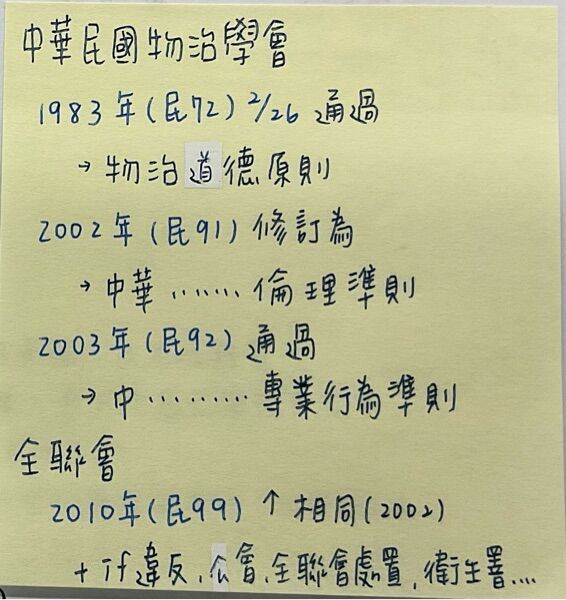 中華民國物治學會
1983年(民72) 2/26 通過
→ 物治道德原則
2002年(民91) 修訂為
→ 中華 ....... 倫理準則
2003年(民92) 通過
→ 中 ......... 專業行為準則
全聯會
2010年(民99) ↑ 相同(2002)
+ if 違反, 公會, 全聯會處置, 衛生署....